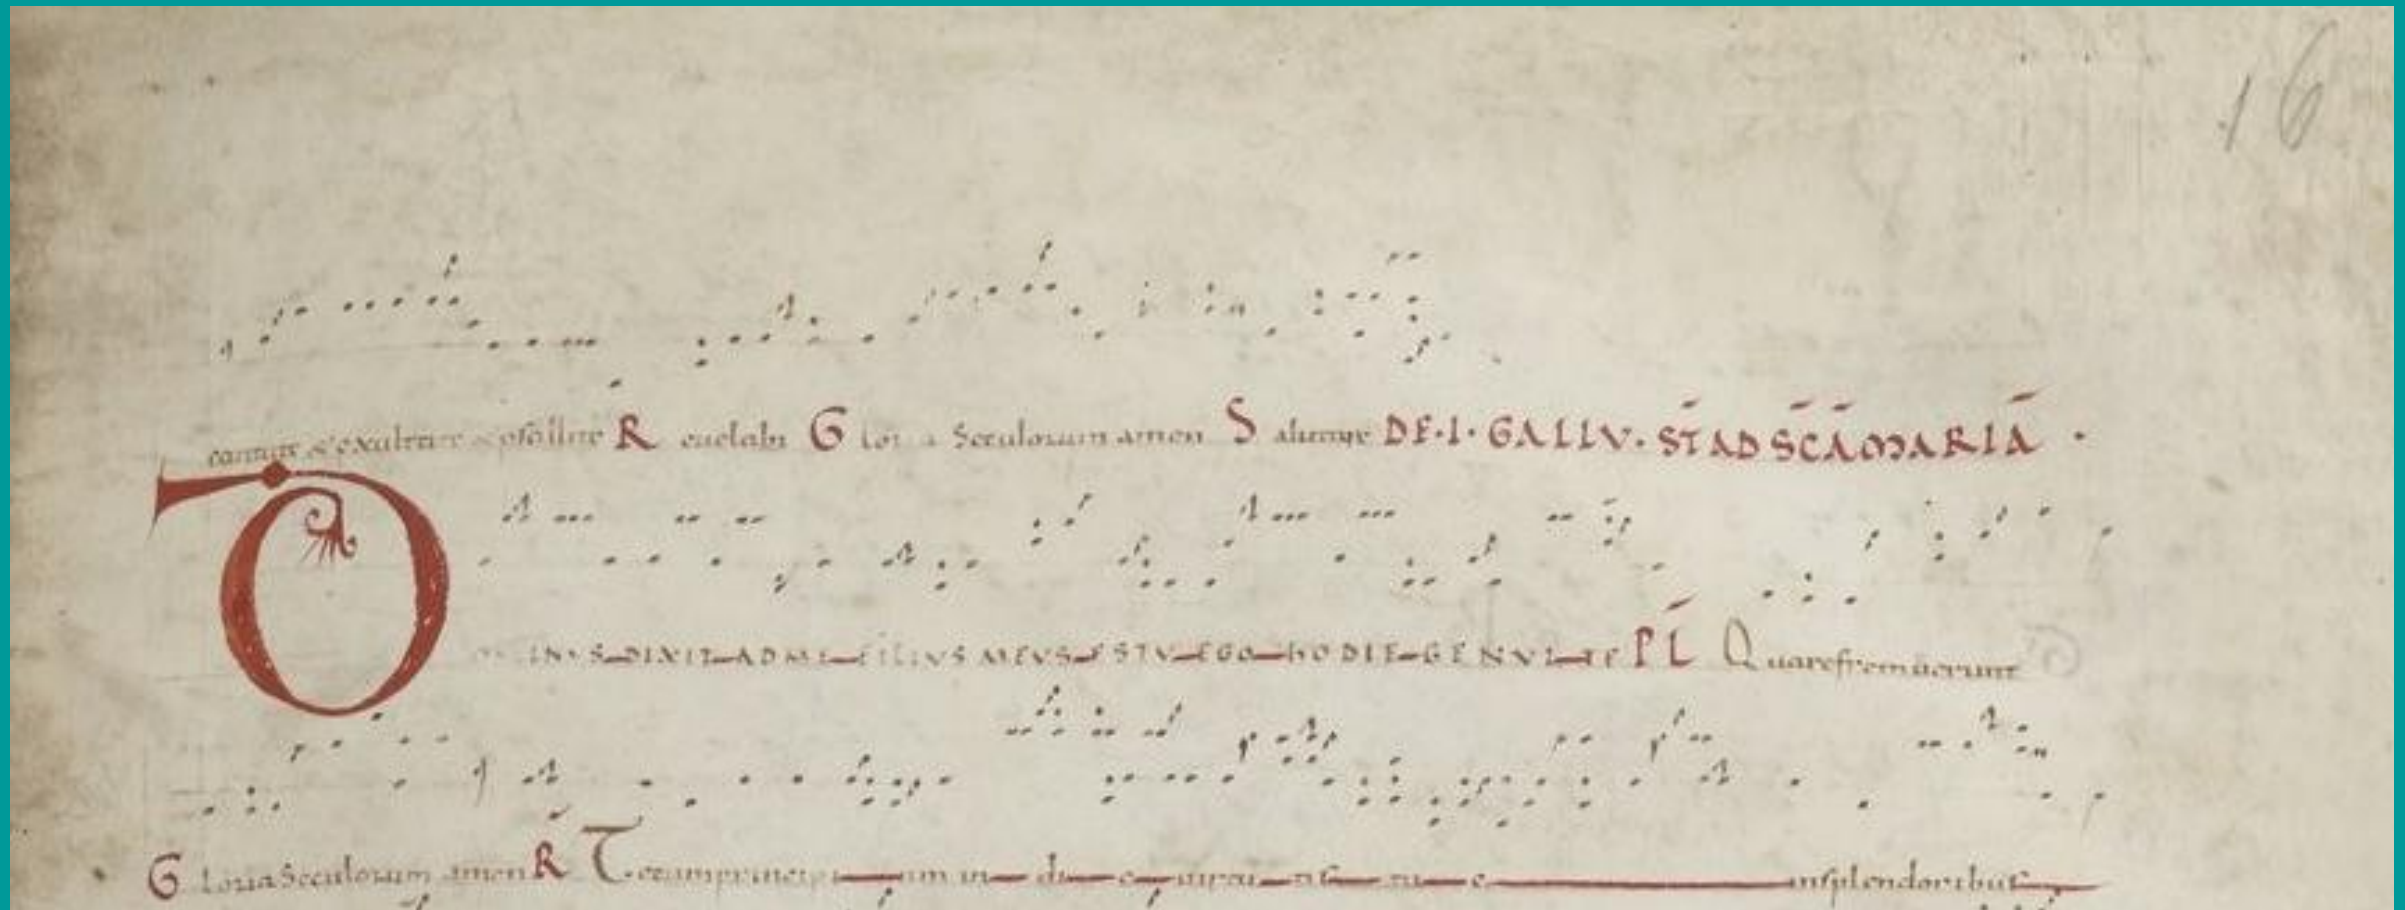 16
cantate & exultate & psallite R euelabi G loria Seculorum amen S alutare DE·I· GALLV· ST AD SCA MARIA·
D OMINVS DIXIT AD ME FILIVS MEVS ES TV EGO HODIE GENVI TE PL Quare fremuerunt
G loria Seculorum amen R Tecum principium in die uirtutis tue insplendoribus